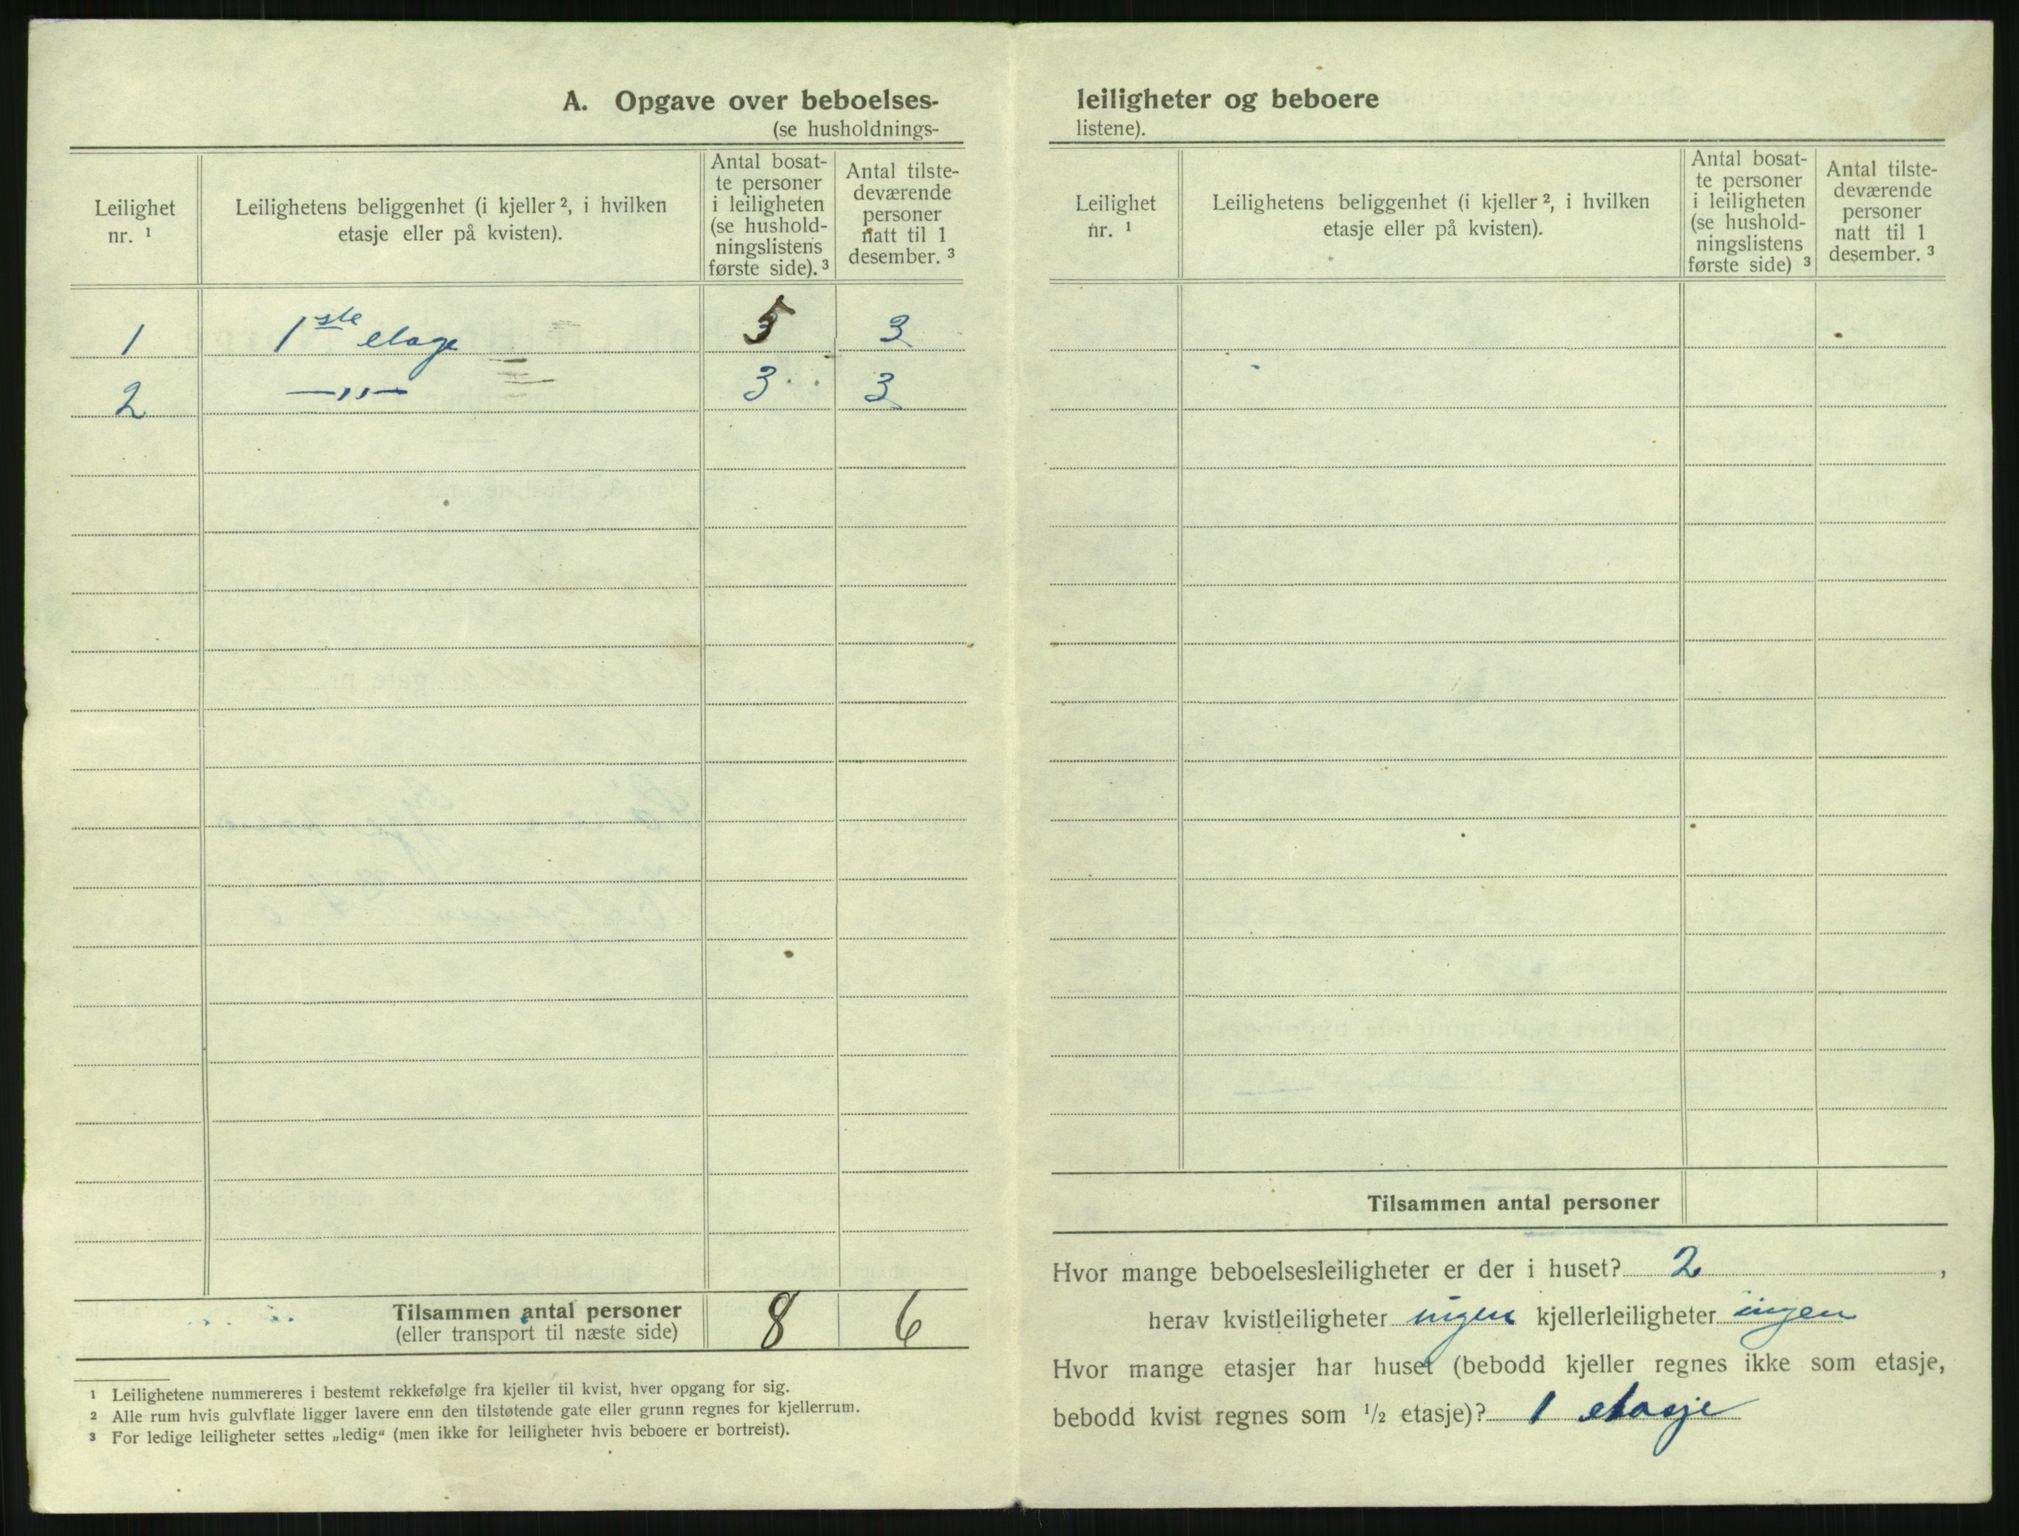 A. Opgave over beboelses-
(se husholdnings-
Leilighet nr. ¹
Leilighetens beliggenhet (i kjeller ², i hvilken etasje eller på kvisten).
Antal bosat-
te personer
i leiligheten
(se hushold-
ningslistens
første side). ³
Antal tilste-
deværende
personer
natt til 1
desember. ³
1 1ste etage 5 3
2 —„— 3 3
Tilsammen antal personer 8 6
(eller transport til næste side)
¹ Leilighetene nummereres i bestemt rekkefølge fra kjeller til kvist, hver opgang for sig.
² Alle rum hvis gulvflate ligger lavere enn den tilstøtende gate eller grunn regnes for kjellerrum.
³ For ledige leiligheter settes „ledig“ (men ikke for leiligheter hvis beboere er bortreist).
leiligheter og beboere
listene).
Leilighet nr. ¹
Leilighetens beliggenhet (i kjeller ², i hvilken etasje eller på kvisten).
Antal bosat-
te personer
i leiligheten
(se hushold-
ningslistens
første side) ³
Antal tilste-
deværende
personer
natt til 1
desember. ³
Tilsammen antal personer
Hvor mange beboelsesleiligheter er der i huset? 2 ,
herav kvistleiligheter ingen kjellerleiligheter ingen
Hvor mange etasjer har huset (bebodd kjeller regnes ikke som etasje,
bebodd kvist regnes som ½ etasje)? 1 etasje